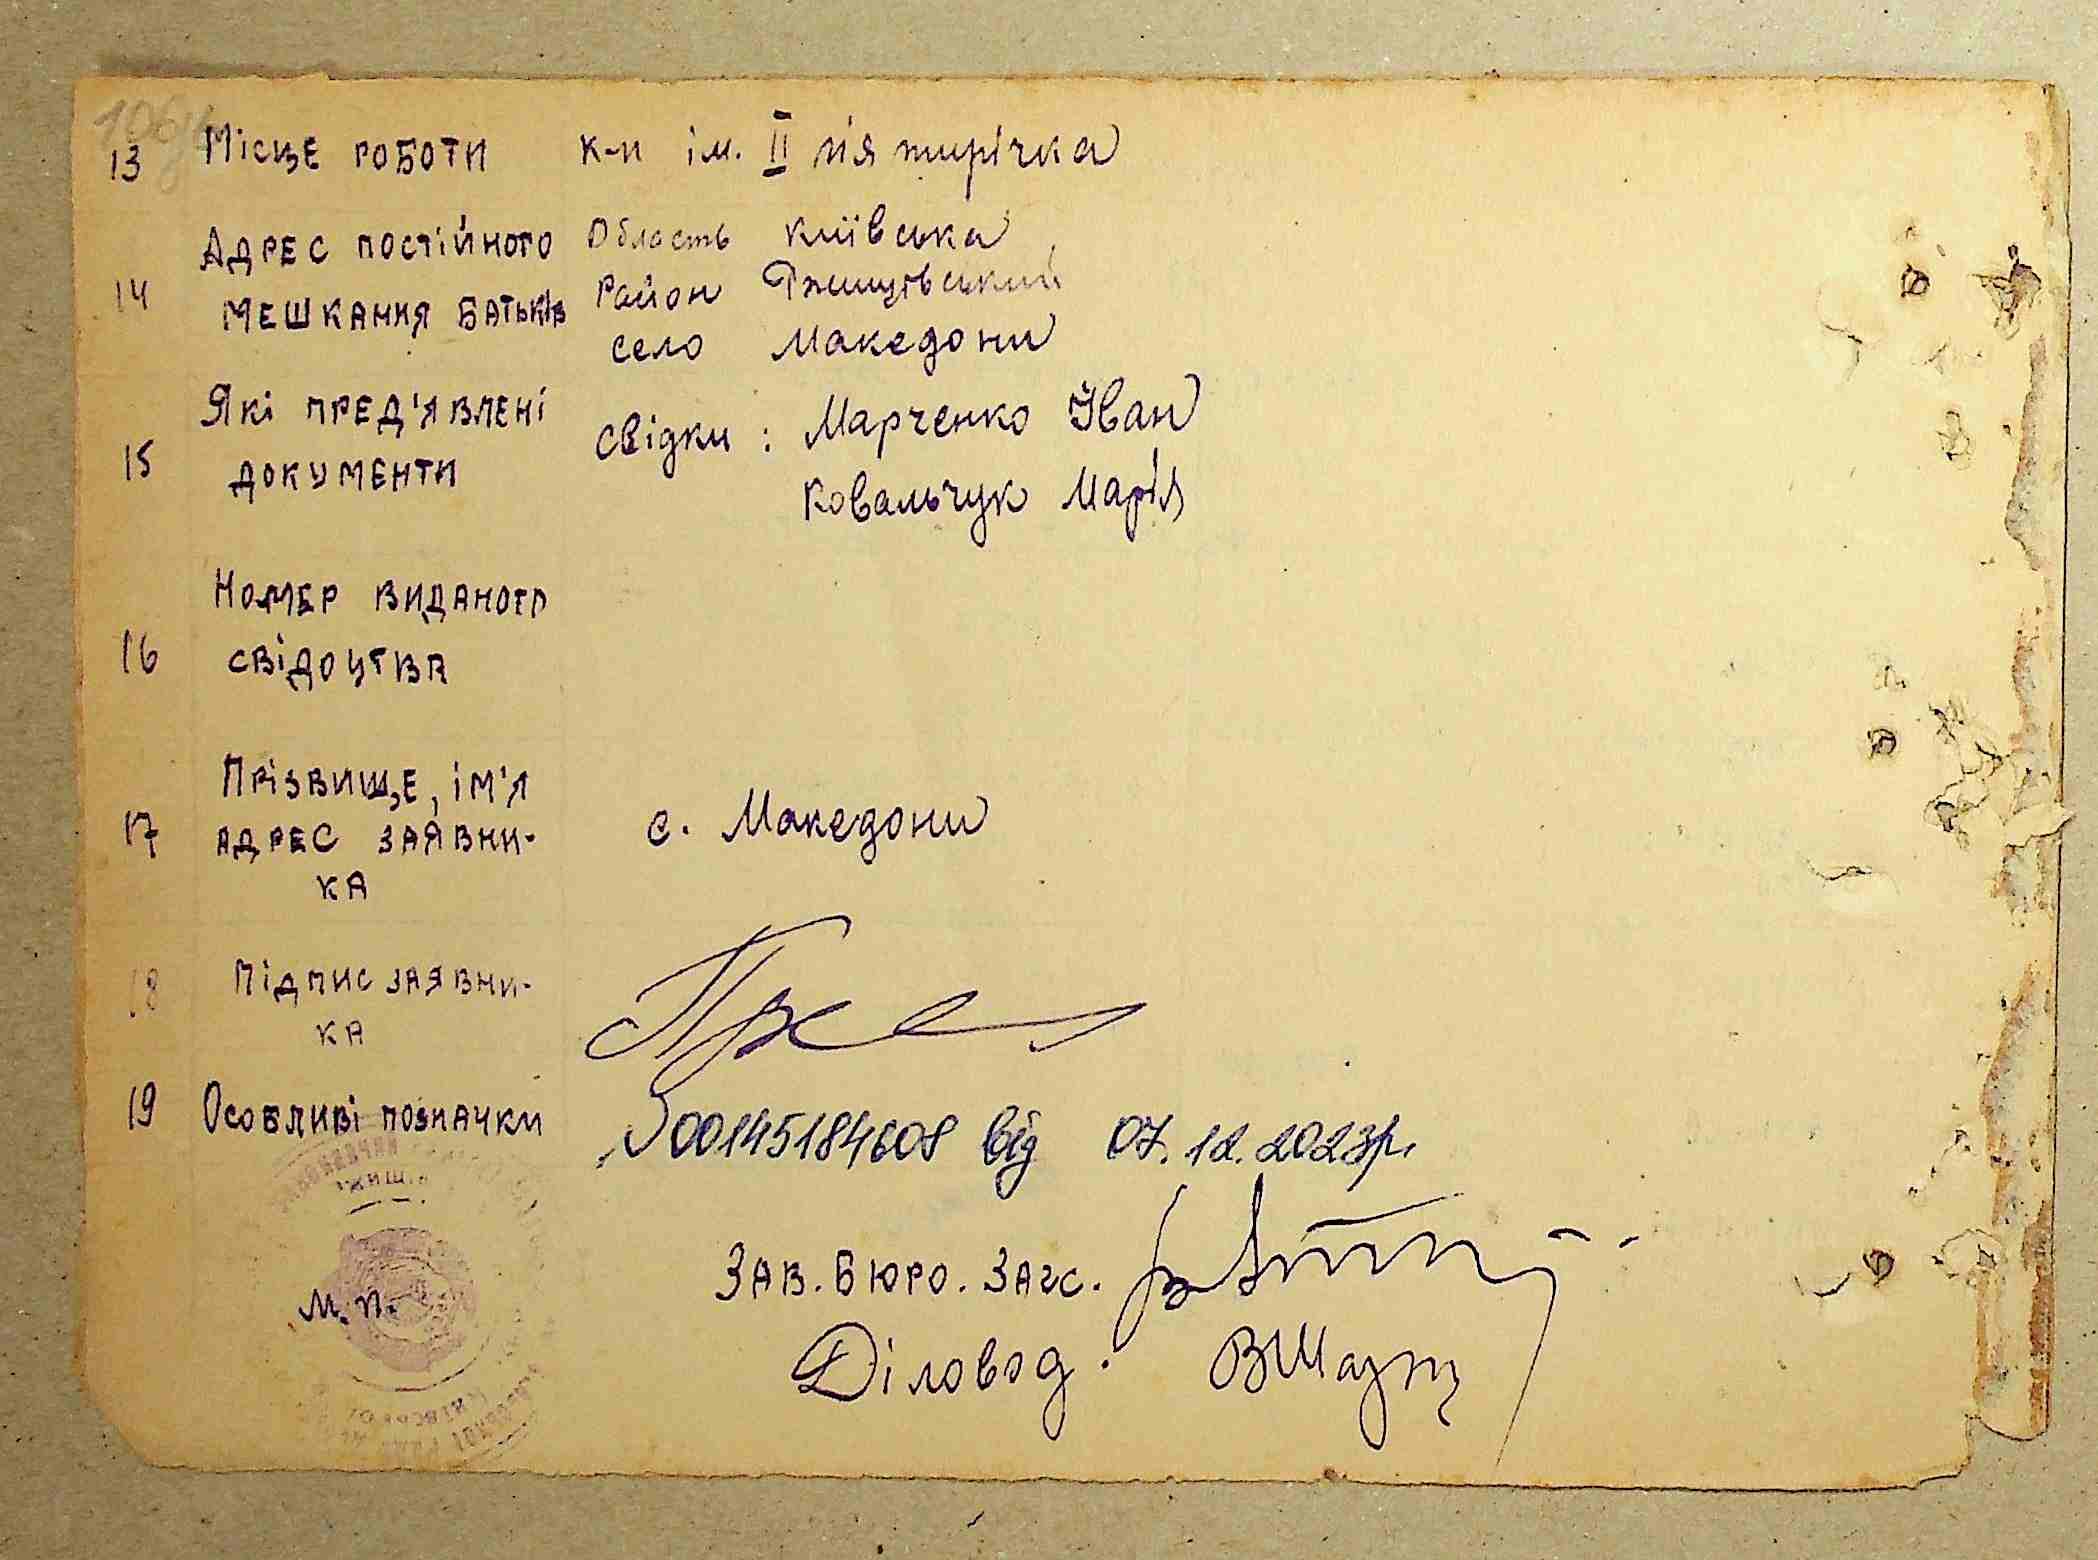 13 Місце роботи к-п ім. II п'ятирічка
14 Адрес постійного Область Київська
мешкання батьків Район Ржищівський
село Македони
15 Які пред'явлені свідки: Марченко Іван
документи Ковальчук Марія
16 Номер виданого
свідоцтва
Прізвище, ім'я
17 адрес заявни- с. Македони
ка
18 Підпис заявни-
ка
19 Особливі позначки 00145184608 від 07.12.2023р.
м.п. Зав. бюро. Загс.
Діловод.